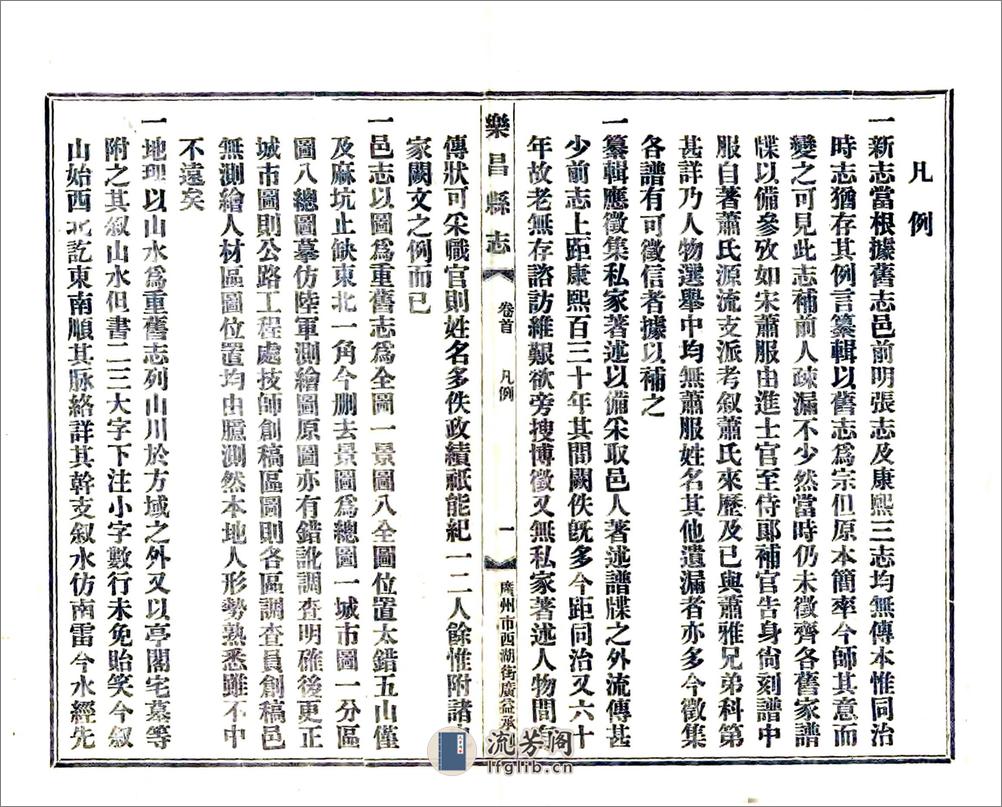 凡例
一新志當根據舊志邑前明張志及康熙三志均無傳本惟同治
時志猶存其例言纂輯以舊志爲宗但原本簡率今師其意而
變之可見此志補前人疎漏不少然當時仍未徵齊各舊家譜
牒以備參攷如宋蕭服由進士官至侍郎補官告身尙刻譜中
服自著蕭氏源流支派考叙蕭氏來歷及已與蕭雅兄弟科第
甚詳乃人物選舉中均無蕭服姓名其他遺漏者亦多今徵集
各譜有可徵信者據以補之
一纂輯應徵集私家著述以備采取邑人著述譜牒之外流傳甚
少前志上距康熙百三十年其間闕佚旣多今距同治又六十
年故老無存諮訪維艱欲旁搜博徵又無私家著述人物間有
樂昌縣志
卷首
凡例
一
廣州市西湖街廣益承
傳狀可采職官則姓名多佚政績祇能紀一二人餘惟附諸
家闕文之例而已
一邑志以圖爲重舊志爲全圖一景圖八全圖位置太錯五山僅
及麻坑止缺東北一角今删去景圖爲總圖一城市圖一分區
圖八總圖摹仿陸軍測繪圖原圖亦有錯訛調查明確後更正
城市圖則公路工程處技師創稿區圖則各區調查員創稿邑
無測繪人材區圖位置均由臆測然本地人形勢熟悉雖不中
不遠矣
一地理以山水爲重舊志列山川於方域之外又以亭閣宅墓等
附之其叙山水但書二三大字下注小字數行未免貽笑今叙
山始西北訖東南順其脉絡詳其幹支叙水仿酈雷今水經先
流芳閣
lfglib.cn